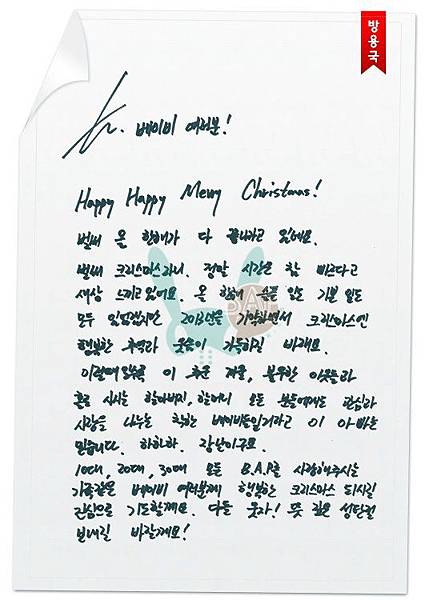 방용국
베이비 여러분!
Happy Happy Merry Christmas!
벌써 올 한해가 다 끝나고 있네요.
벌써 크리스마스라니. 정말 시간은 참 빠르다고
새삼 느끼고있어요. 올 한해 슬픈 일도 기쁜 일도
모두 있었겠지만 2013년을 기약하면서 크리스마스엔
행복한 추억과 웃음이 가득하길 바래요.
이럴때일수록 이 추운 겨울, 불우한 이웃들과
홀로 사시는 할아버지, 할머니 모든 분들에게도 관심과
사랑을 나누는 착한 베이비들일거라고 이 아빠는
믿습니다. 하하하. 장난이구요.
10대, 20대, 30대 모든 B.A.P를 사랑해주시는
가족같은 베이비 여러분께 행복한 크리스마스 되시길
진심으로 기도할께요. 다들 웃자! 뜻 깊은 성탄절
보내길 바랄께요!